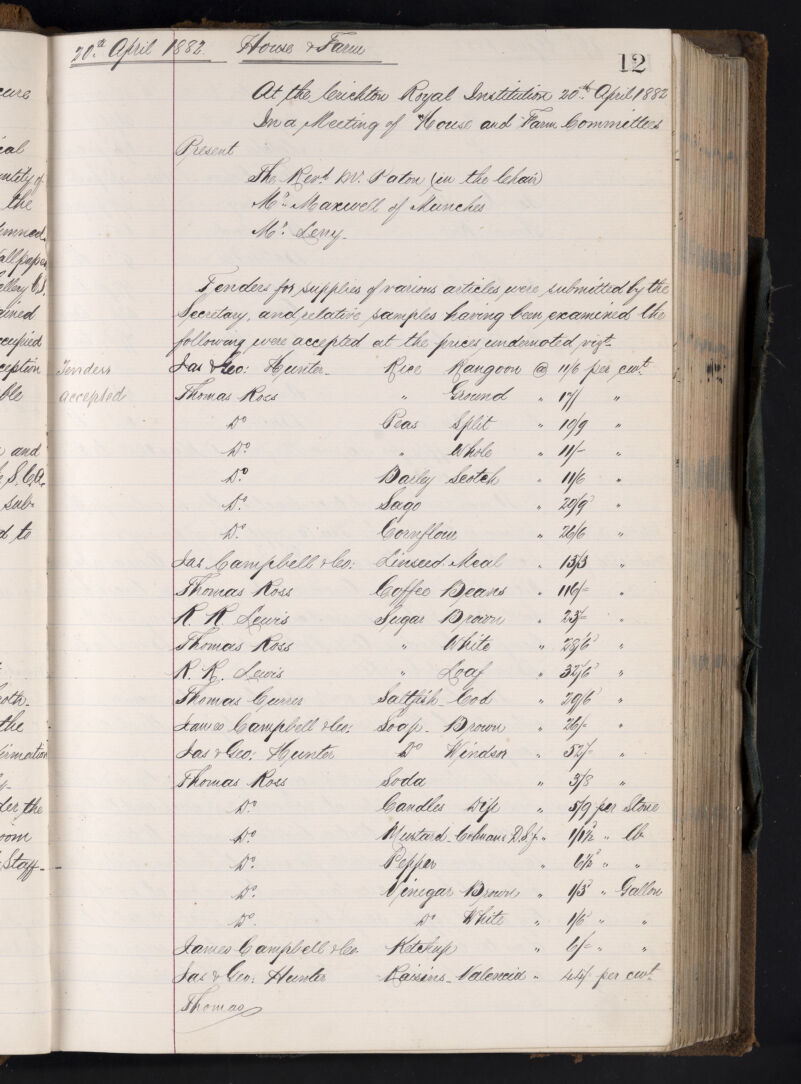 cure
ical
the
occupied
ception
ble
and
sub-
d to
the
der the
oom
Staff -
20th April 1882. House & Farm
12
At the Crichton Royal Institution 20th April 1882
In a Meeting of House and Farm Committees
Present
The Revd Mr Paton (in the Chair)
Mr Maxwell of Munches
Mr Leny.
Tenders for supplies of various articles were submitted by the
Secretary, and relative samples having been examined the
following were accepted at the prices undernoted vizt.
Tenders
accepted
Jas & Geo: Hunter. Rice Rangoon @ 11/6 per cwt.
Thomas Ross " Ground " 17/ "
Do Peas Split " 10/9 "
Do " Whole " 11/- "
Do Barley Scotch " 11/6 "
Do Sago " 20/9 "
Do Cornflour " 26/6 "
Jas Campbell & Co: Linseed Meal " 13/3 "
Thomas Ross Coffee Beans " 116/- "
R. K. Lewis Sugar Brown " 23/- "
Thomas Ross " White " 28/6 "
R. K. Lewis " Loaf " 32/6 "
Thomas Currer Saltfish - Cod " 29/6 "
James Campbell & Co: Soap - Brown " 26/- "
Jas & Geo: Hunter Do Windsor " 52/- "
Thomas Ross Soda " 3/8 "
Do Candles Dip " 5/9 per Stone
Do Mustard - Colmans D.S.F. " 1/1½ " lb
Do Pepper " 6½ " "
Do Vinegar Brown " 1/3 " Gallon
Do Do White " 1/6 " "
James Campbell & Co Ketchup " 6/- " "
Jas & Geo: Hunter Raisins - Valencia " 44/- per cwt.
Thomas